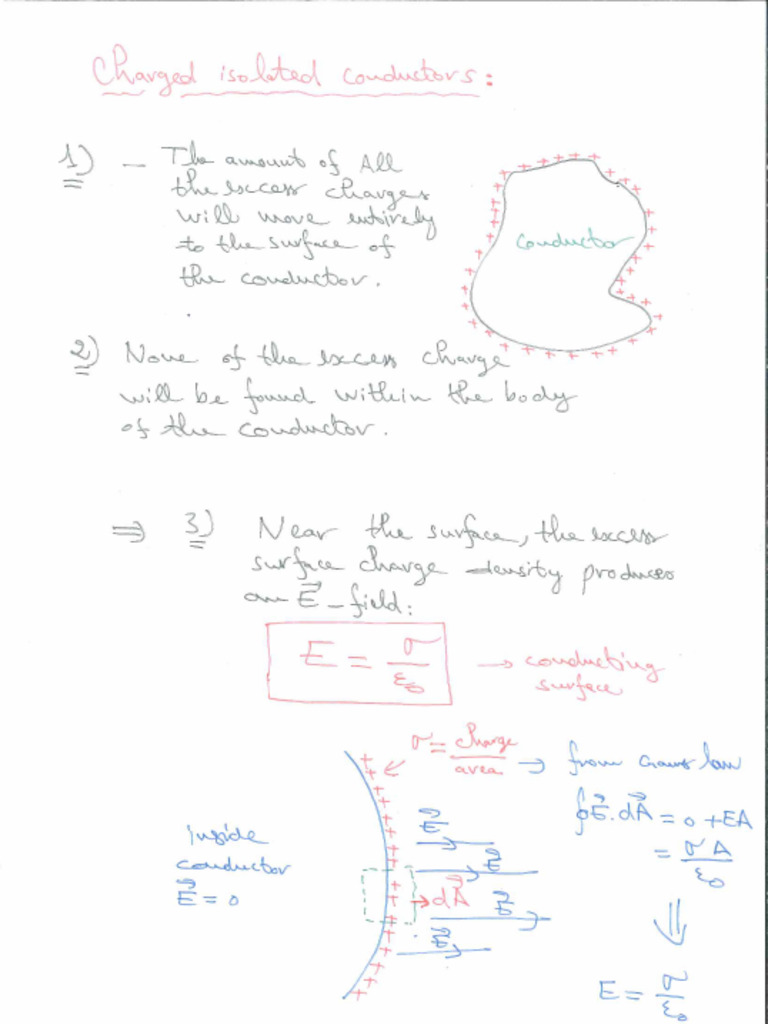 Charged isolated conductors:
1) - The amount of All
the excess charges
will move entirely
to the surface of
the conductor.
conductor
2) None of the excess charge
will be found within the body
of the conductor.
⇒ 3) Near the surface, the excess
surface charge density produces
an E⃗-field:
E = σ/ε₀ → conducting
surface
σ = charge/area → from Gauss law
∮E⃗.dA⃗ = 0 + EA
= σA/ε₀
⇓
E = σ/ε₀
Inside
conductor
E⃗ = 0
E⃗
E⃗
dA⃗
E⃗
E⃗